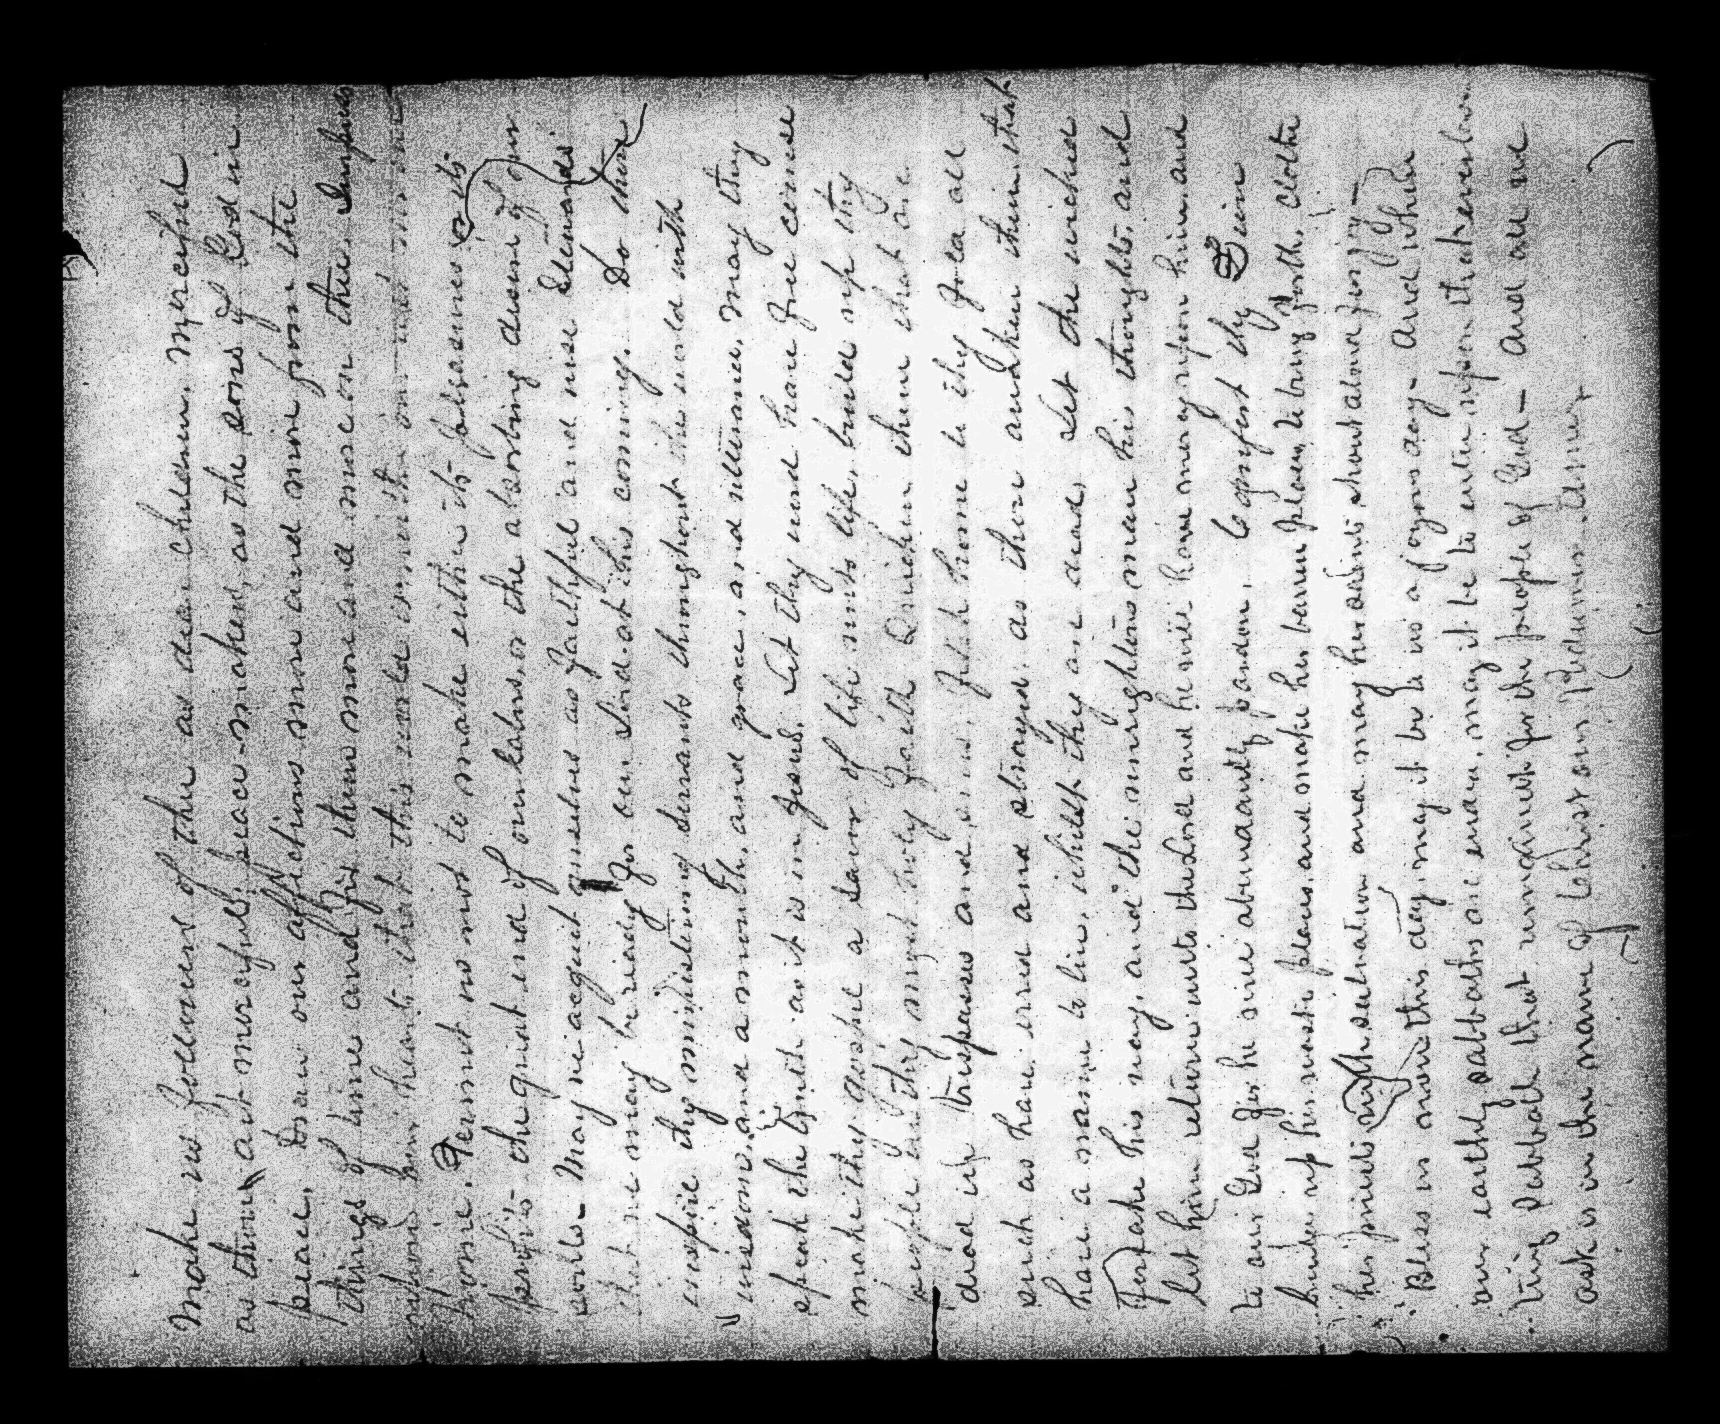 Make us followers of thee as dear children. Merciful
as thou art merciful, peace-makers, as the sons of God in
peace. Draw our affections more and more from the
things of time and fix them more and more on thee. Impress
upon our hearts that this world is not our
home. Permit us not to make either its pleasures or its
profits the great end of our labors, or the absorbing desire of our
souls— May we acquit ourselves as faithful and wise stewards
that we may be ready for our Lord at his coming. Do thou
inspire thy ministering servants throughout the world with
wisdom, and a mouth, and grace, and utterance, may they
speak the truth as it is in Jesus. Let thy word have free course
make thy gospel a savor of life unto life, build up thy
people in thy most holy faith Quicken them that are
dead in trespasses and sins. Fetch home to thy fold all
such as have erred and strayed as thou awaken them that
have a name to live, whilst they are dead, Let the wicked
Forsake his way, and the unrighteous man his thoughts, and
let him return unto the Lord and he will have mercy upon him, and
to our God for he will abundantly pardon. Comfort thy Zion
build up her waste places, and make her barren places to bring forth, clothe
her priests with salvation and may her saints shout aloud for joy—
Bless us more this day may it be to us a joyous day— And when
our earthly sabbaths are ended, may it be to enter upon that
ting Sabbath that remaineth for the people of God— And all we
ask is in the name of Christ our Redeemer. Amen